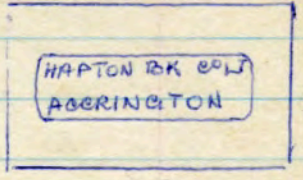 HAPTON BK COLY
ACCRINGTON